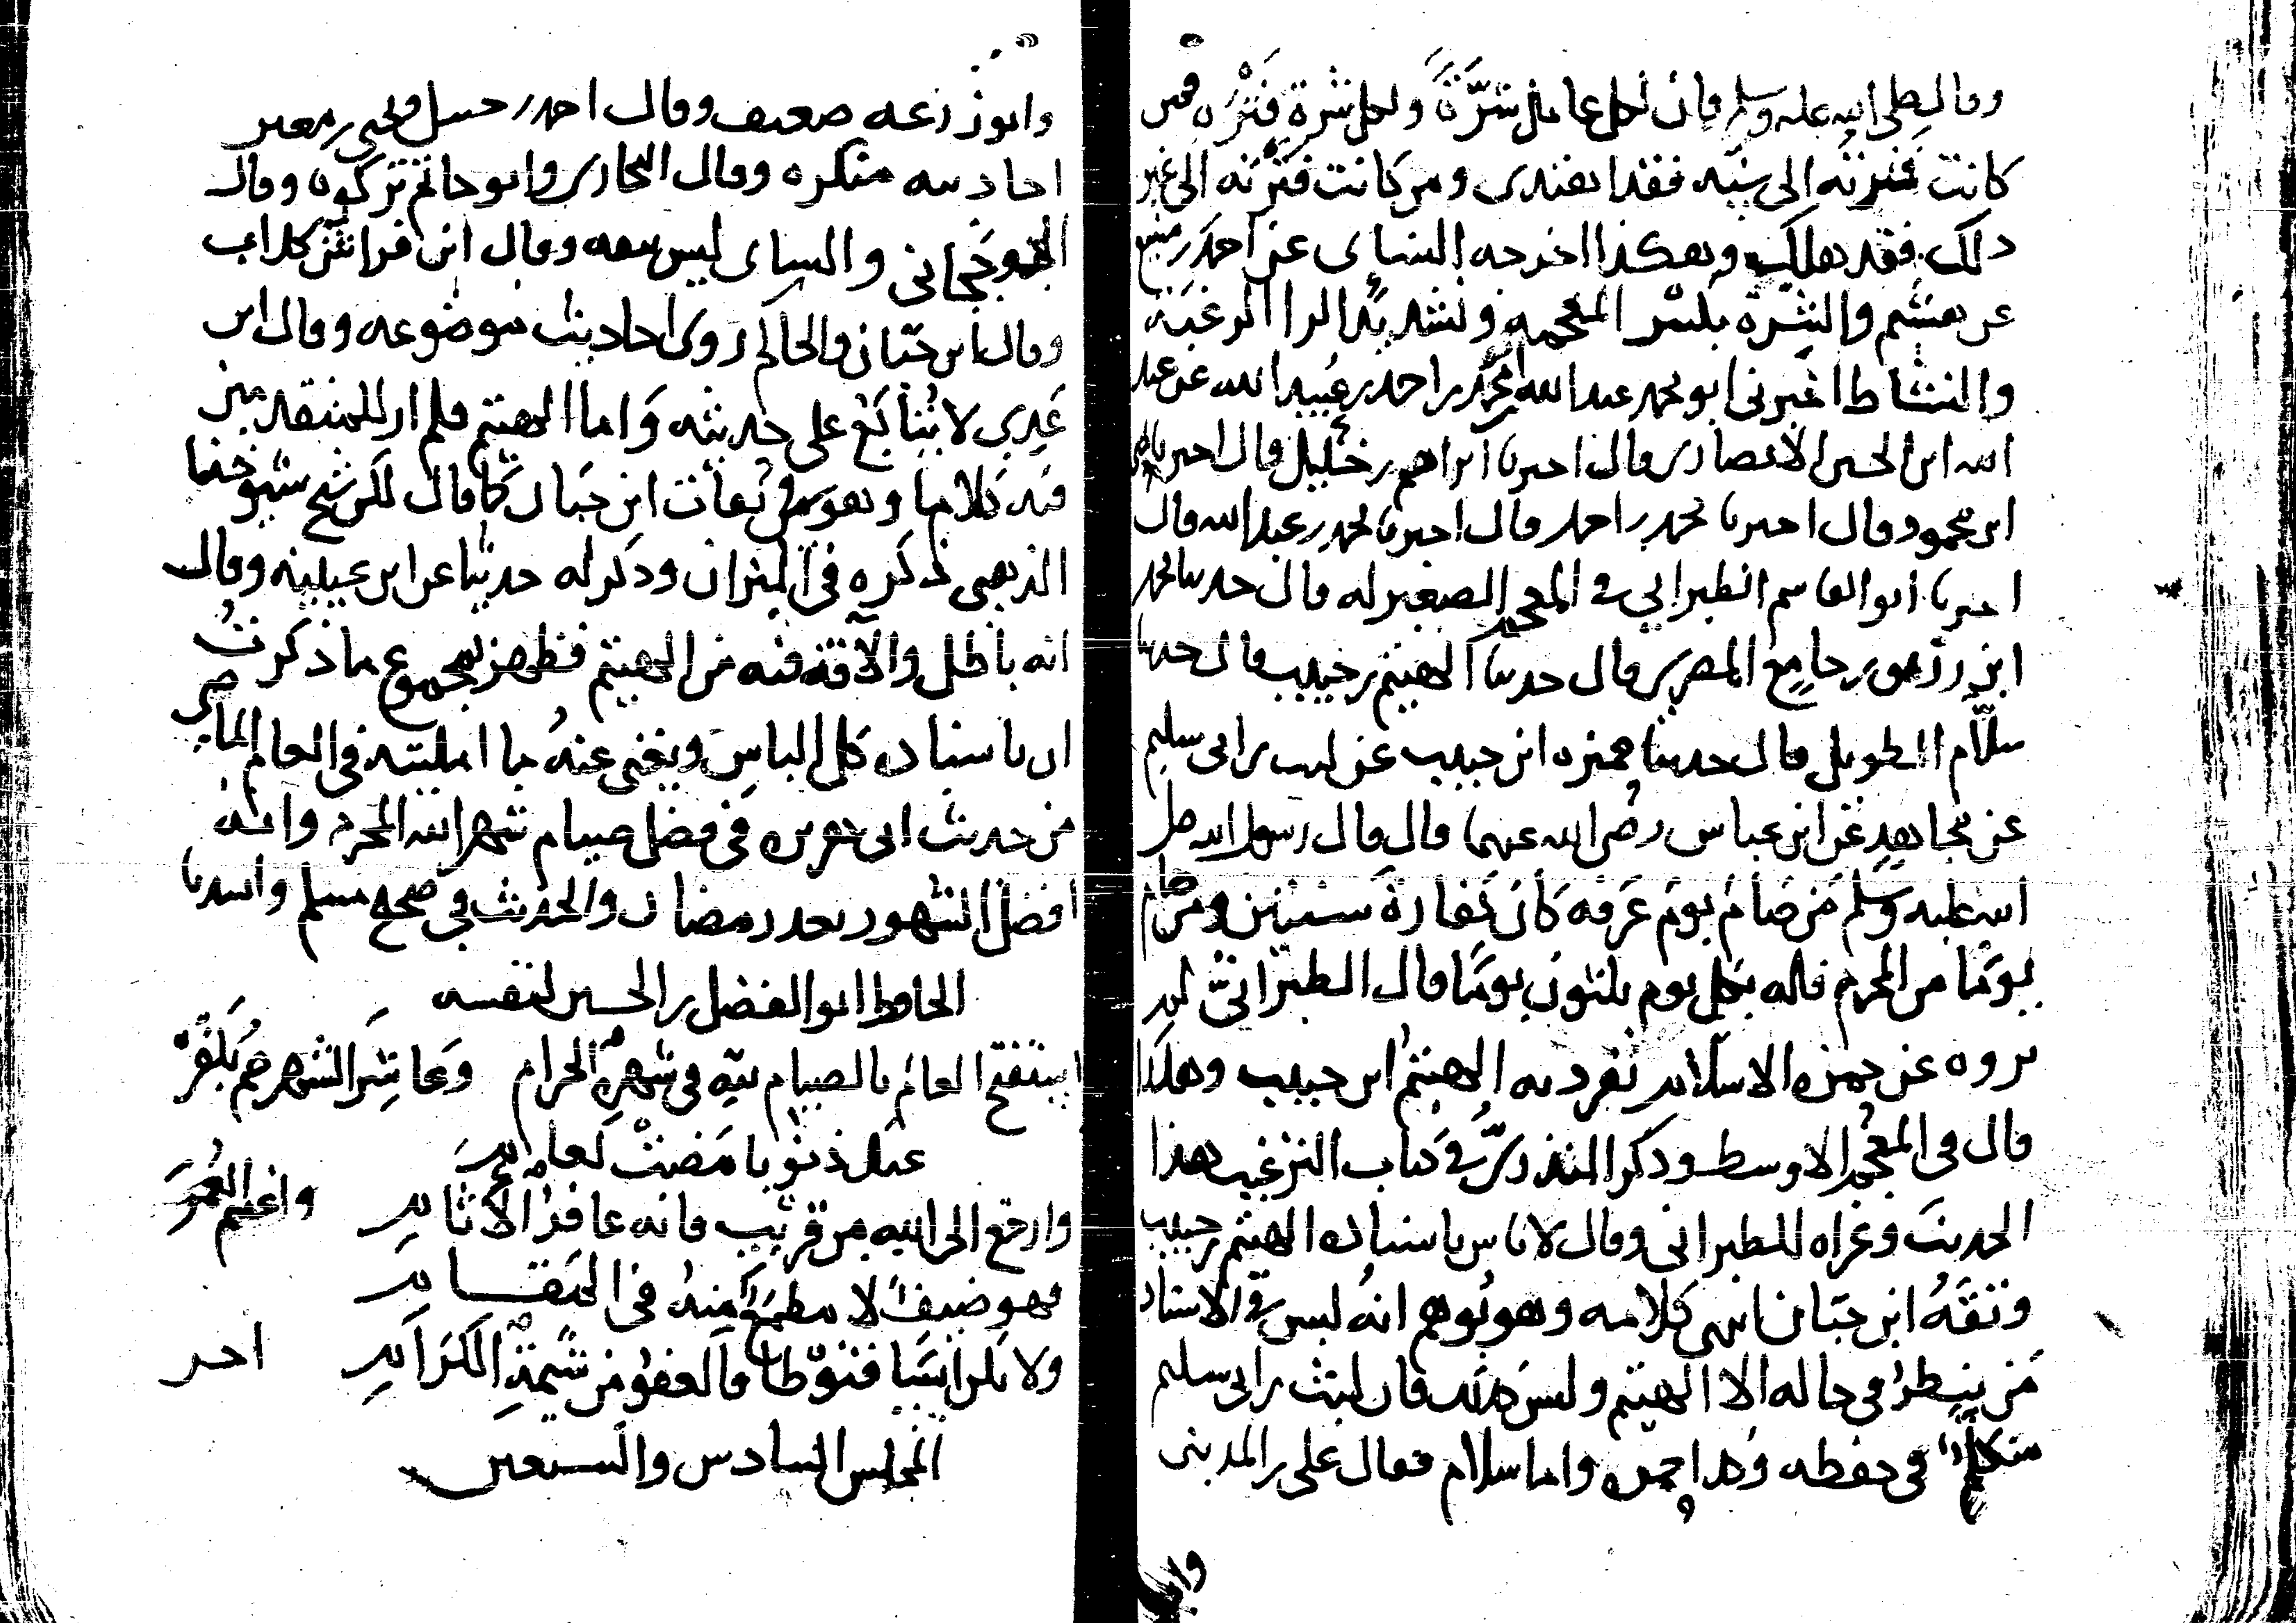 وقال صلى الله عليه وسلم فان لكل عامل شرة ولكل شرة فترة فمن
كانت فترته الى سنته فقد اهتدى ومن كانت فترته الى غير
ذلك فقد هلك وهكذا اخرجه النسائى عن احمد بن منيع
عن هشيم والشرة بكسر المعجمة وتشديد الرا الرغبة
والنشاط اخبرنى ابو محمد عبد الله بن محمد بن احمد بن عبيد الله عن عبد
الله ابن الحسين الانصارى قال اخبرنا ابراهيم بن خليل قال اخبرنا
ابن محمود قال اخبرنا محمد بن احمد قال اخبرنا محمد بن عبد الله قال
اخبرنا ابو القاسم الطبرانى فى المعجم الصغير له قال حدثنا محمد
ابن رزيق بن جامع المصرى قال حدثنا الهيثم بن حبيب قال حدثنا
سلام الطويل قال حدثنا حمزه ابن حبيب عن ليث بن ابى سليم
عن مجاهد عن ابن عباس رضى الله عنهما قال قال رسول الله صلى
الله عليه وسلم من صام يوم عرفه كان كفارة سنتين ومن صام
يوما من المحرم فله بكل يوم ثلثون يوما قال الطبرانى لم
يروه عن حمزه الا سلام تفرد به الهيثم ابن حبيب وهكذا
قال فى المعجم الاوسط وذكر المنذرى فى كتاب الترغيب هذا
الحديث وعزاه للطبرانى وقال لا باس باسناده الهيثم بن حبيب
وثقه ابن حبان انتهى كلامه وهو يوهم انه ليس فى الاسناد
من ينظر فى حاله الا الهيثم وليس كذلك فان ليث بن ابى سليم
متكلم فى حفظه وكذا حمزه واما سلام فقال على بن المدينى
وابو
وابو زرعه ضعيف وقال احمد بن حنبل ويحيى بن معين
احاديثه منكره وقال البخارى وابو حاتم تركوه وقال
الجوزجانى والنسائى ليس بثقه وقال ابن خراش كذاب
وقال ابن حبان والحاكم روى احاديث موضوعه وقال ابن
عدى لا يتابع على حديثه واما الهيثم فلم ار للمتقدمين
فيه كلاما وهو فى ثقات ابن حبان كما قال لكن شيخ شيوخنا
الذهبى ذكره فى الميزان وذكر له حديثا عن ابن عيينه وقال
انه باطل والآفة فيه من الهيثم فظهر بمجموع ما ذكرت
ان باسناده كل الباس ويغنى عنه ما امليته فى العام الماضى
من حديث ابى هريره فى فضل صيام شهر الله المحرم وانه
افضل الشهور بعد رمضان والحديث فى صحيح مسلم وانشدنا
الحافظ ابو الفضل بن الحسين لنفسه
استفتح العام بالصيام لله فى شهره الحرام وعاشر الشهر صم يكفر
عنك ذنوبا مضت لعام
وارجع الى الله من قريب فانه غافر الاثام واغتنم العمر
فهو ضيف لا مطمع منه فى المقام
ولا تكن ايسا قنوطا فالعفو من شيمة الكرام اخر
المجلس السادس والسبعين